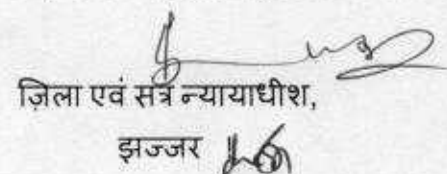 ज़िला एवं सत्र न्यायाधीश,
झज्जर